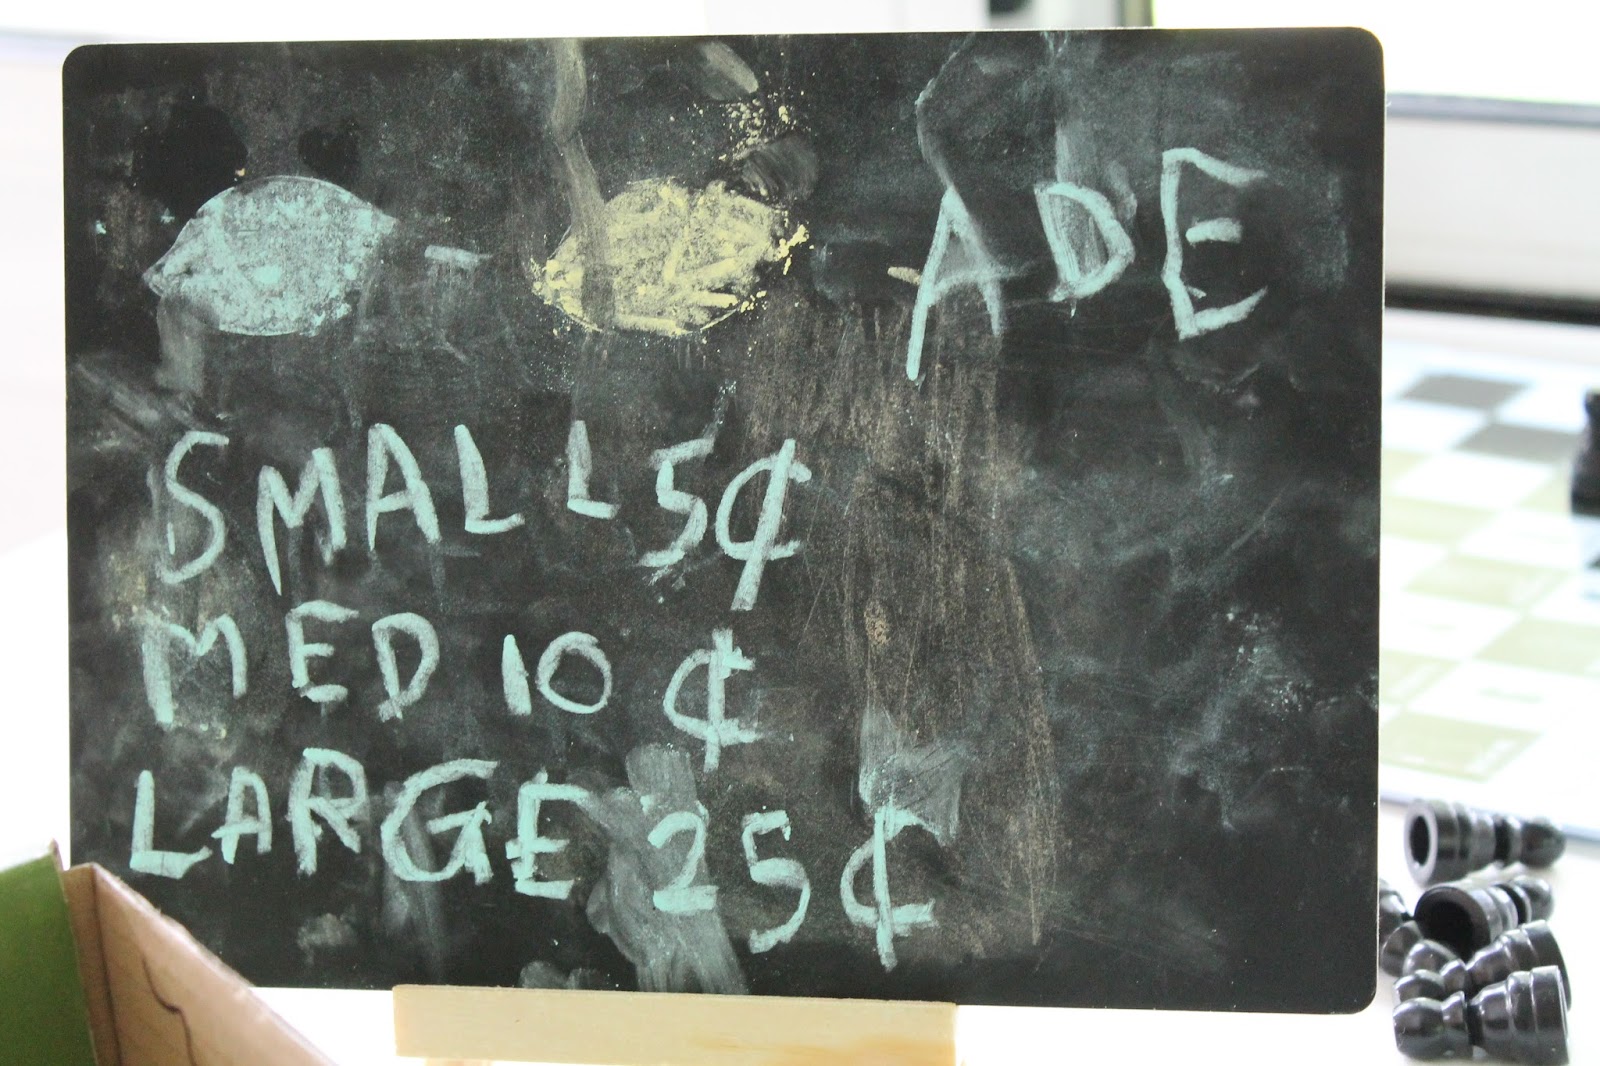 - - ADE
SMALL 5¢
MED 10¢
LARGE 25¢